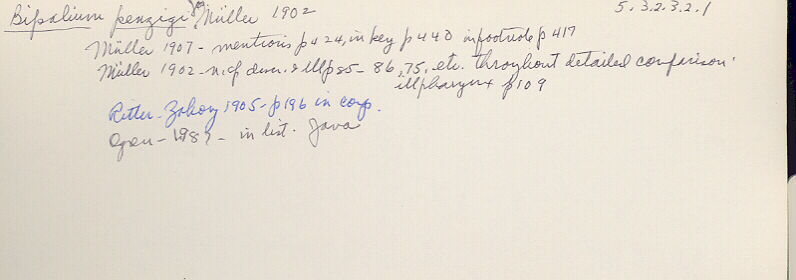 Bipalium penzigi Müller 1902 5.3.2.3.2.1
Müller 1907 - mentions p 424, in key p 440 in footnote p 417
Müller 1902 - n. sp descr. & ill p 85 - 86, 75, etc. throughout detailed comparison.
ill pharynx p 109
Ritter-Zahony 1905 - p 196 in comp.
- in list. Java